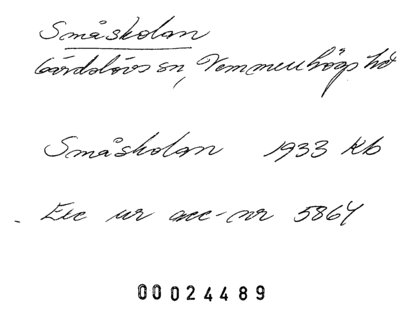 Småskolan
Gärdslövs sn, Vemmenhögs hd
Småskolan 1933 Kb
- Exc ur acc-nr 5864
00024489